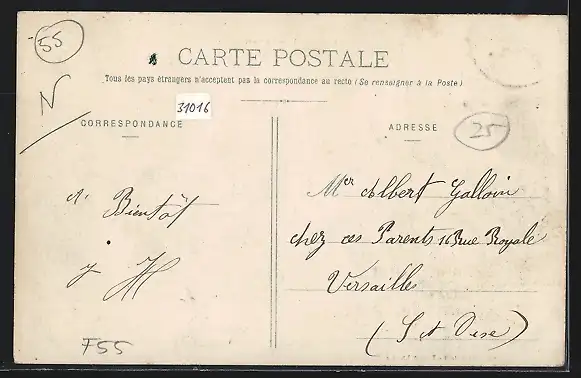 55
CARTE POSTALE
Tous les pays étrangers n'acceptent pas la correspondance au recto (Se renseigner à la Poste)
N
31016
CORRESPONDANCE
ADRESSE
25
A Bientôt
Mer Albert Gallouin
chez ses Parents 16 Rue Royale
Versailles
(S et Oise)
F55